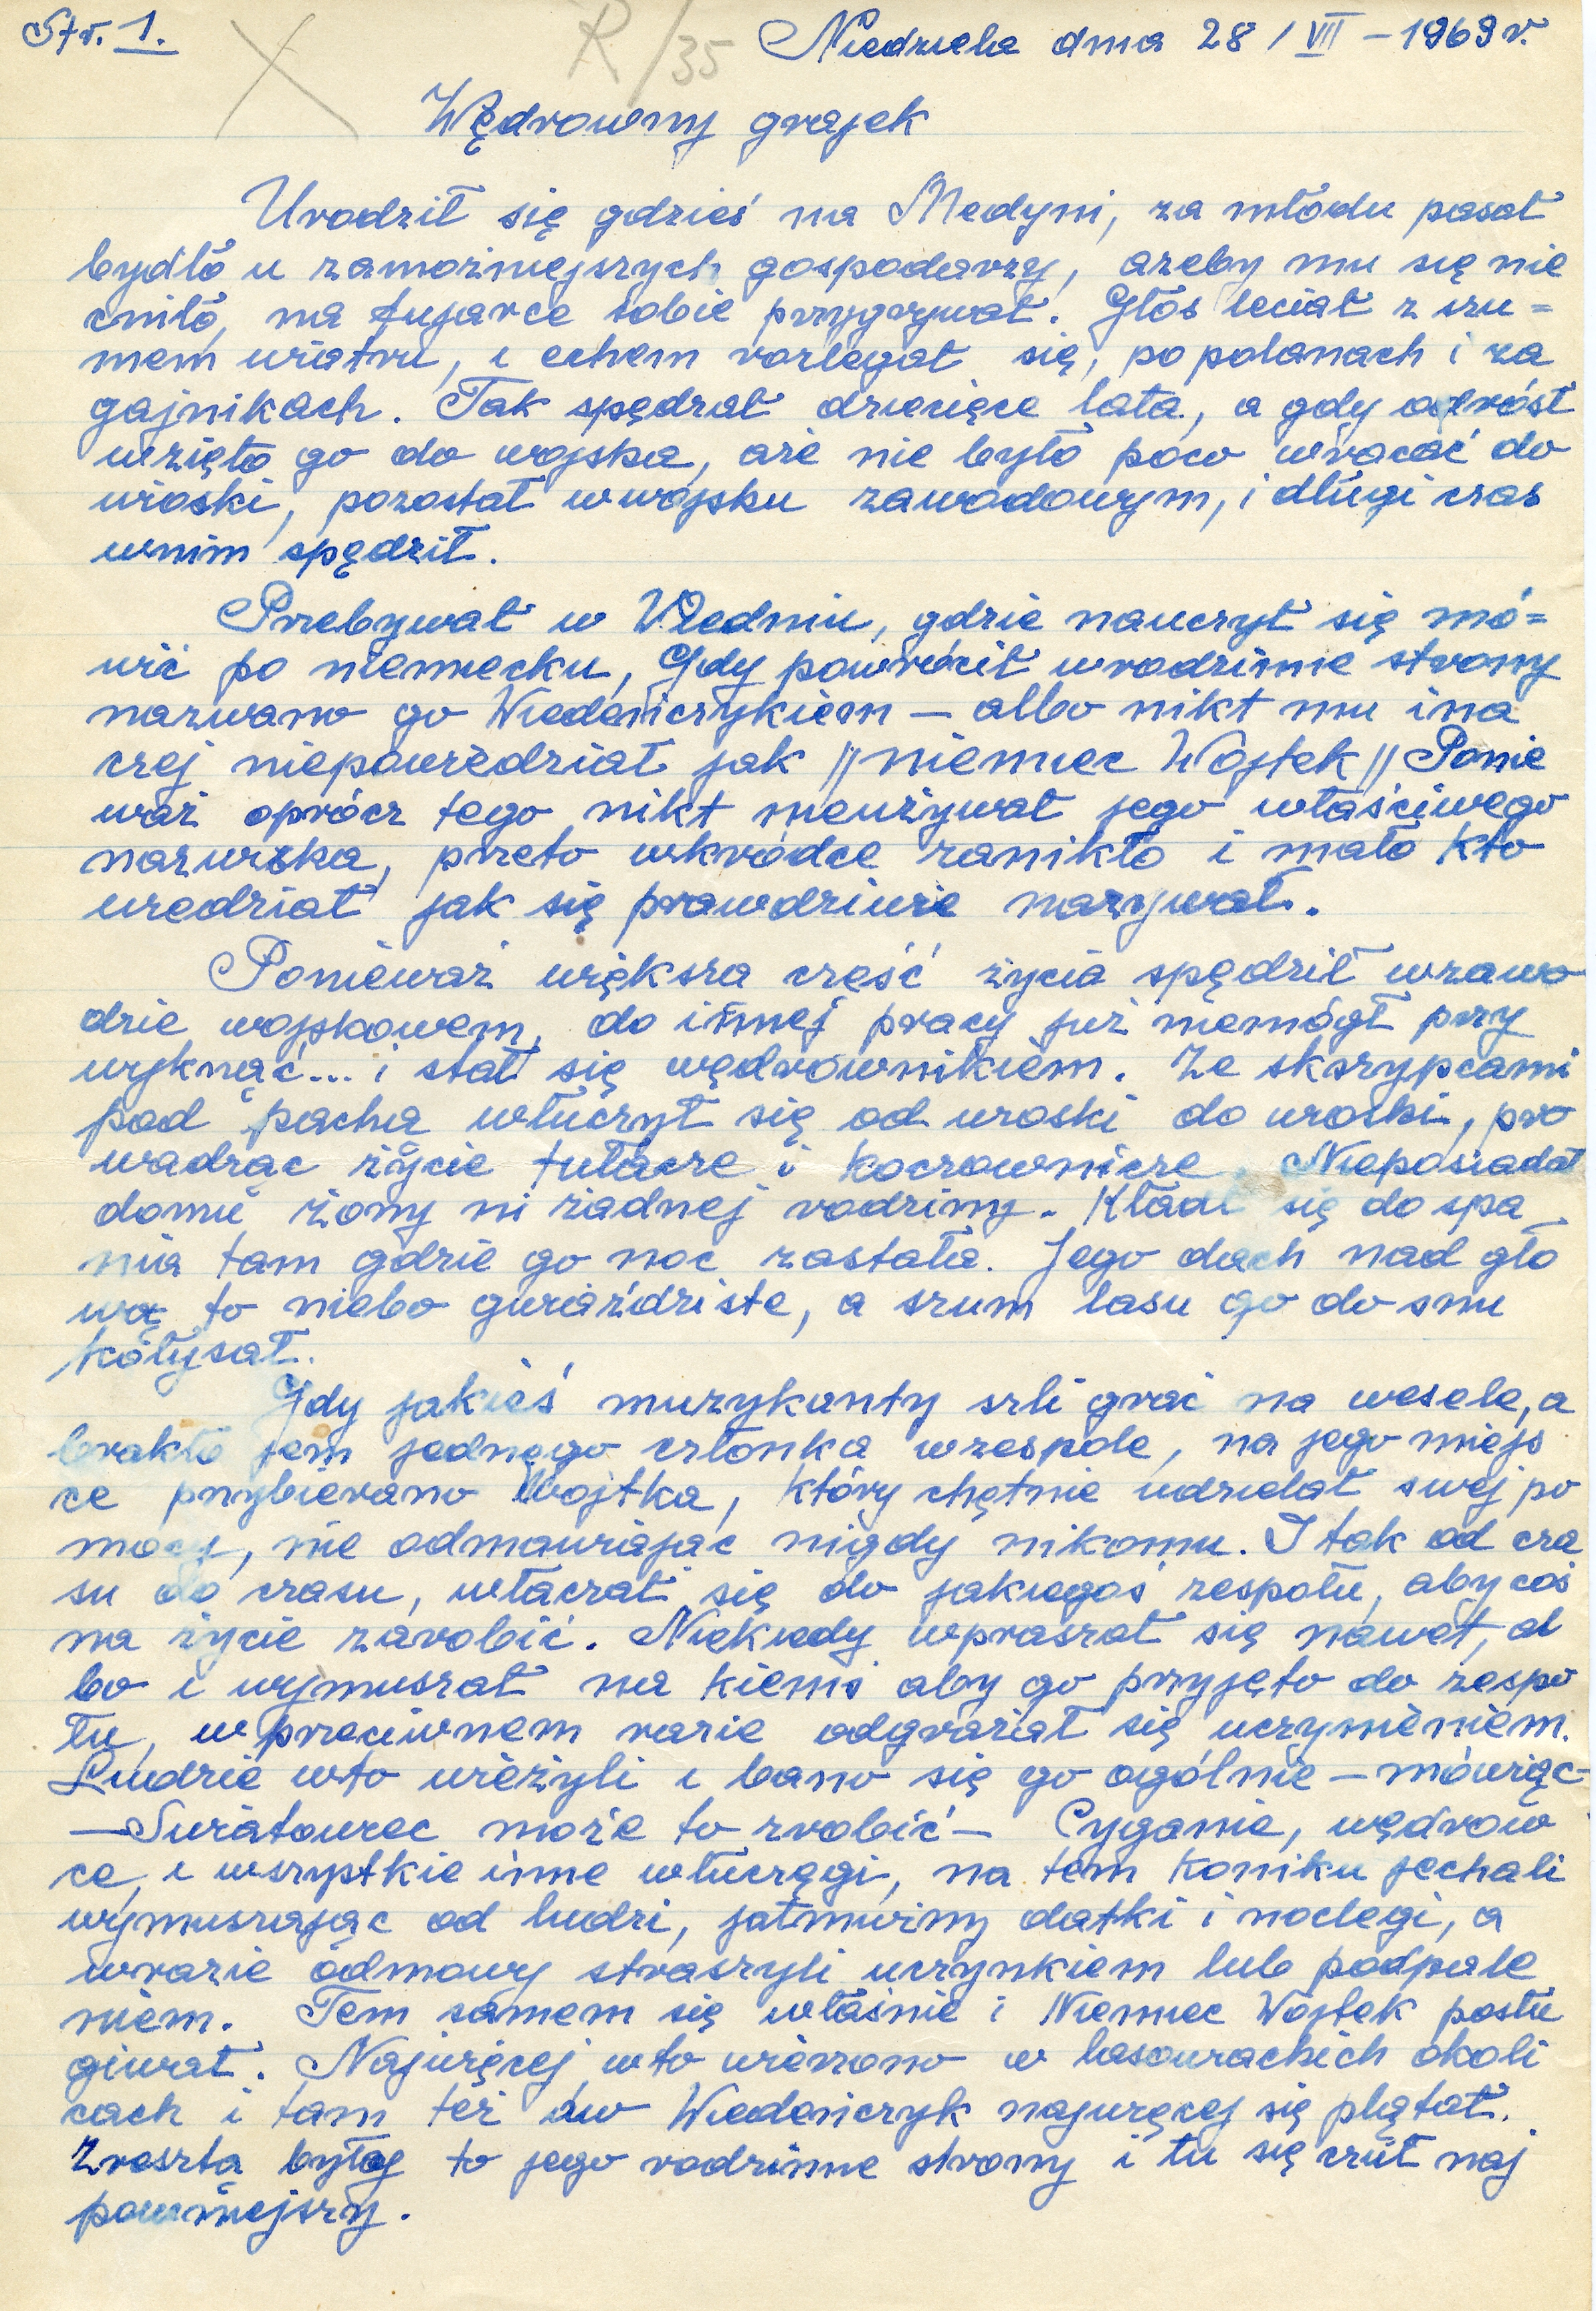 Str. 1.
R/35
Niedziela dnia 28 / VII – 1969 r.
Wędrowny grajek
Urodził się gdzieś na Medyni, za młodu pasał
bydło u zamożniejszych gospodarzy, ażeby mu się nie
cniło, na fujarce sobie przygrywał. Głos leciał z szu=
mem wiatru, i echem rozlegał się, po polanach i za
gajnikach. Tak spędzał dziecięce lata, a gdy odrósł
wzięto go do wojska, aże nie było poco wracać do
wioski, pozostał w wojsku zawodowym, i długi czas
wnim spędził.
Przebywał w Wiedniu, gdzie nauczył się mó=
wić po niemiecku, Gdy powrócił wrodzinne strony
nazwano go Wiedeńczykiem – albo nikt mu ina
czej niepowiedział jak || niemiec Wojtek || Ponie
waż oprócz tego nikt nieużywał jego właściwego
nazwiska, przeto wkródce zanikło i mało kto
wiedział jak się prawdziwie nazywał.
Ponieważ większa część życia spędził wzawo
dzie wojskowem, do innej pracy już niemógł przy
wyknąć... i stał się wędrownikiem. Ze skszypcami
pod pacha włuczył się od wioski do wioski, pro
wadząc życie tułacze i koczownicze. Nieposiadał
domu żony ni żadnej rodziny. Kładł się do spa
nia tam gdzie go noc zastała. Jego dach nad gło
wą to niebo gwiaździste, a szum lasu go do snu
kołysał.
Gdy jakieś muzykanty szli grać na wesele, a
brakło jem jednego członka wzespole, na jego miejs
ce przybierano Wojtka, który chętnie udzielał swej po
mocy, nie odmawiając nigdy nikomu. I tak od cza
su do czasu, włączał się do jakiegoś zespołu, aby coś
na życie zarobić. Niekiedy wpraszał się nawet, al
bo i wymuszał na kiemś aby go przyjęto do zespo
łu, w przeciwnem razie odgrażał się uczynieniem.
Ludzie wto wieżyli i bano się go ogólnie – mówiąc –
– Światowiec może to zrobić – Cyganie, wędrow
ce, i wszystkie inne włuczęgi, na tem koniku jechali
wymuszając od ludzi, jałmużny datki i noclegi, a
wrazie odmowy straszyli uczynkiem lub podpale
niem. Tem samem się właśnie i Niemiec Wojtek posłu
giwał. Najwięcej wto wierzono w lasowiackich okoli
cach i tam też ów Wiedeńczyk najwięcej się plątał.
Zresztą były to jego rodzinne strony i tu się czuł naj
pewniejszy.